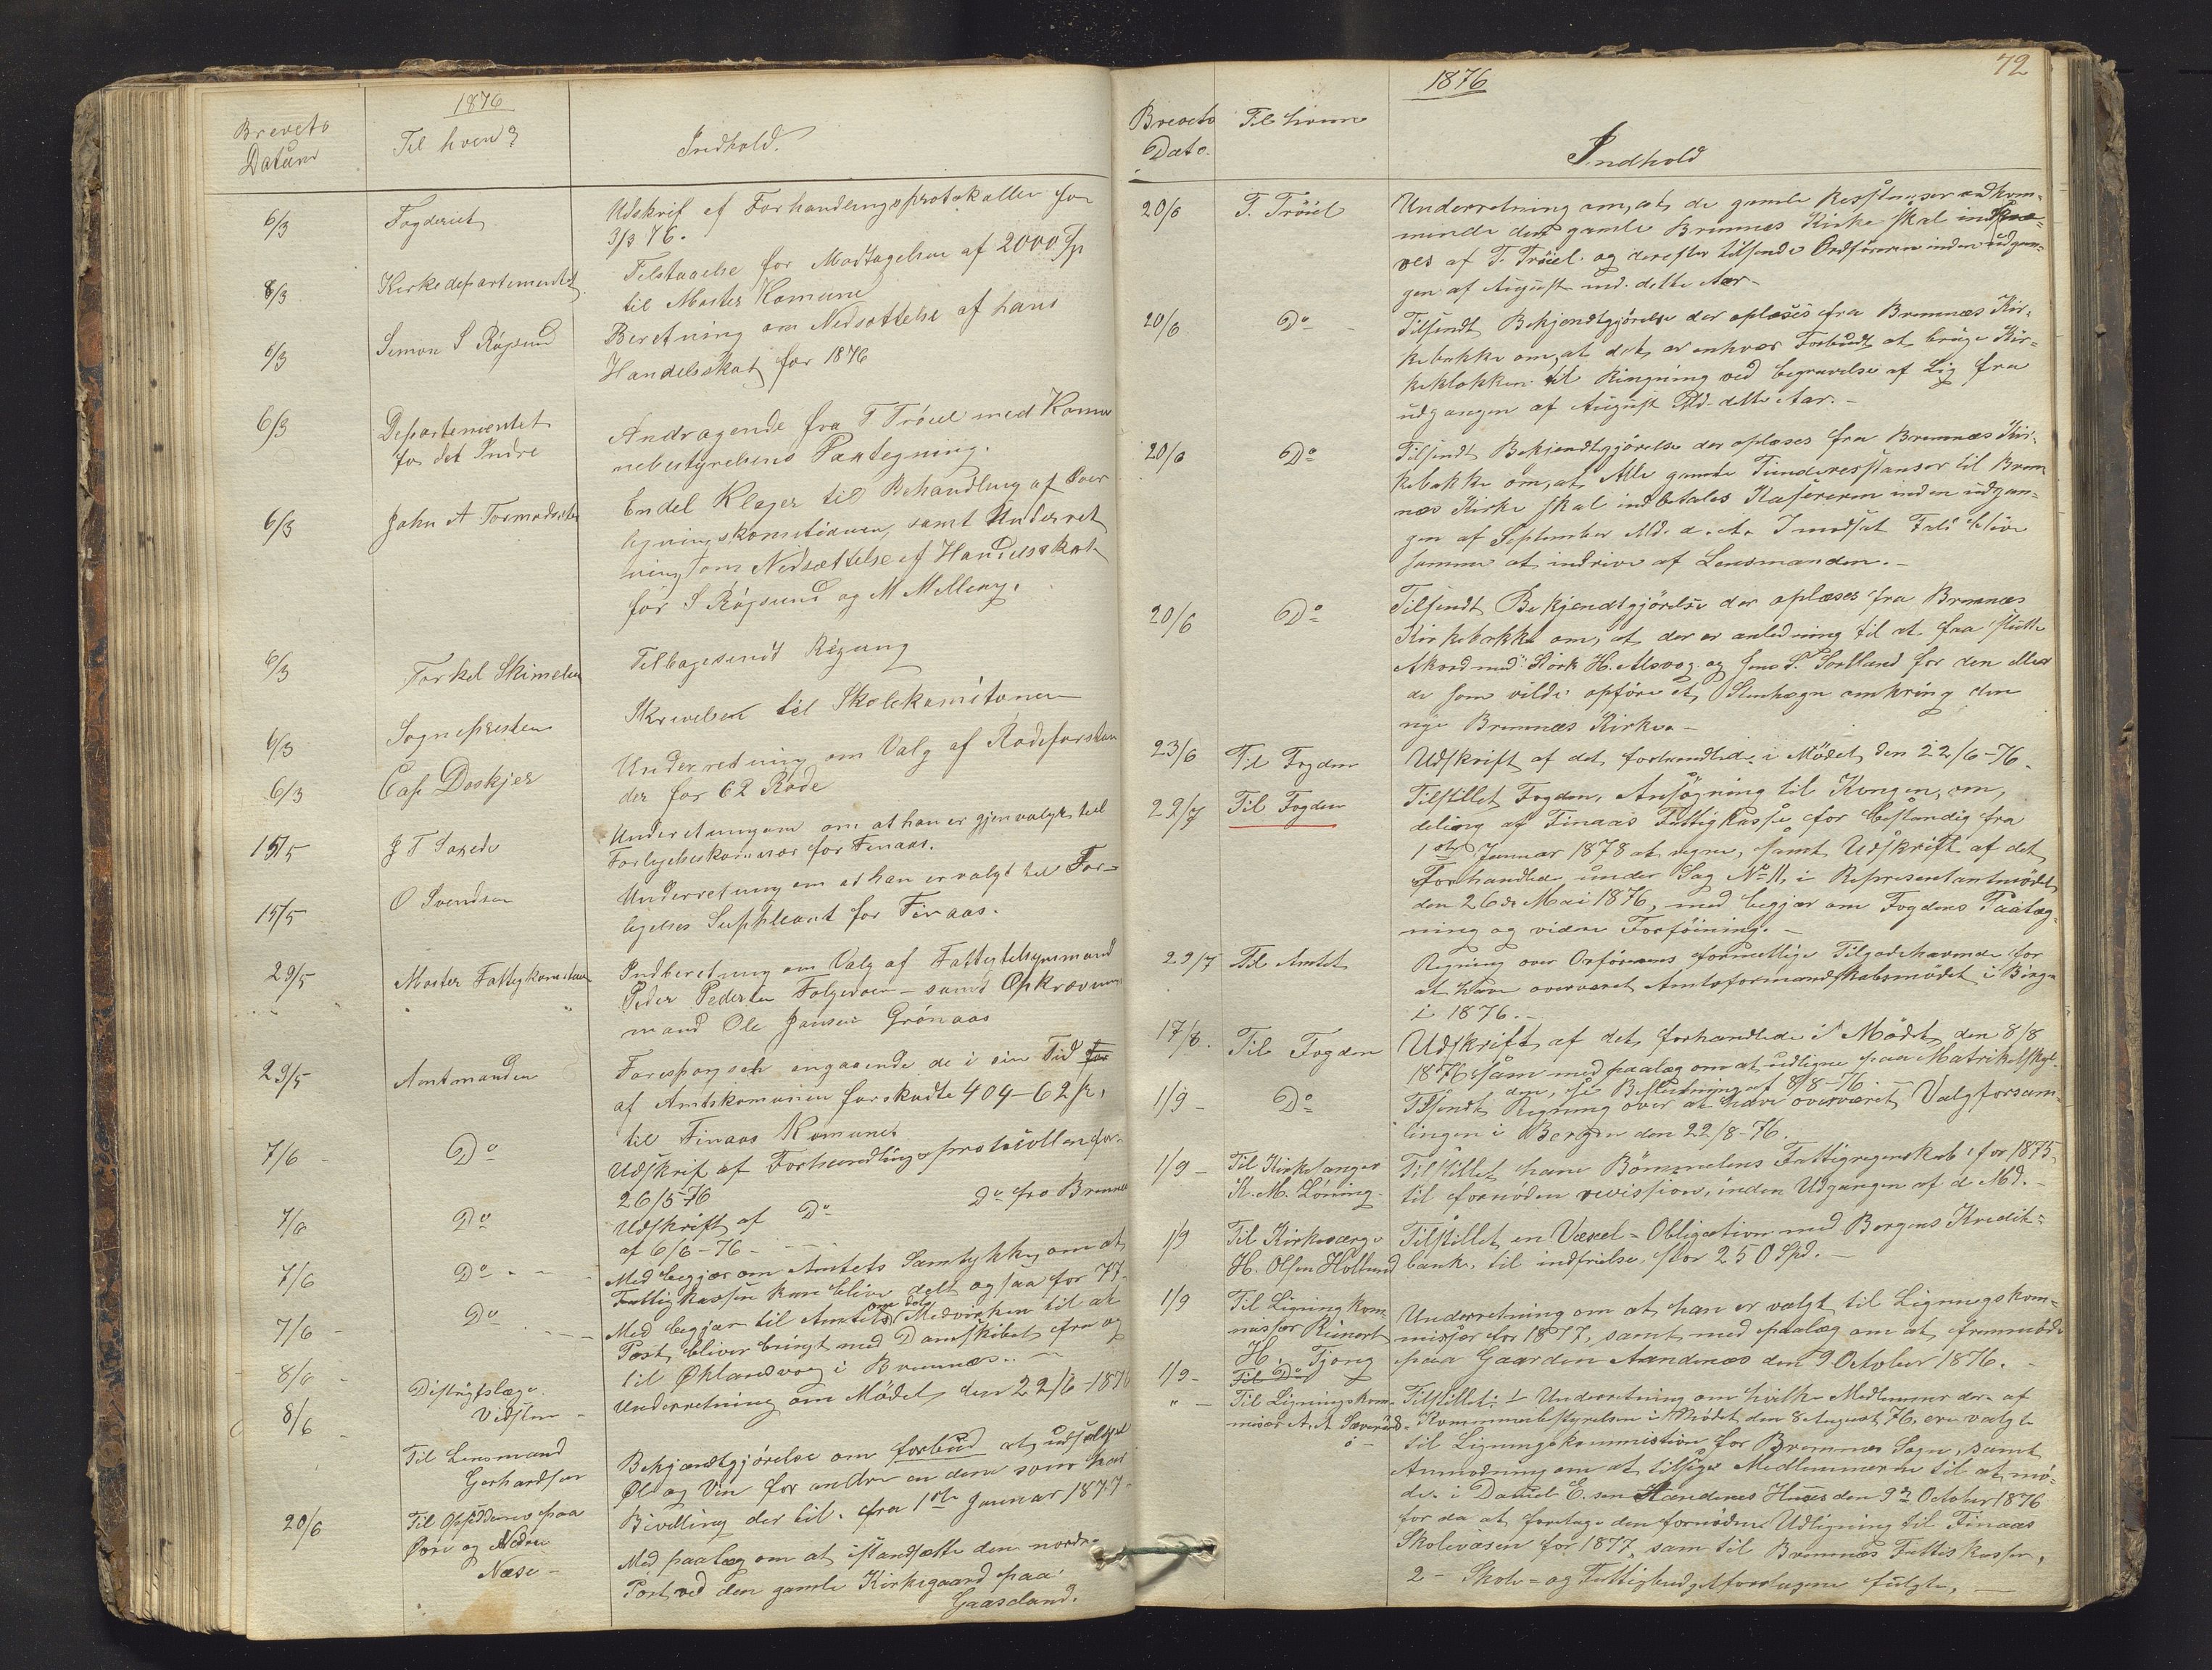 1876
Brevets
Datum
Til hvem?
Indhold.
6/3 Fogderiet Udskrif af Forhandlingsprotokollen for
3/3 76.
8/3 Kirkedepartementet Tilstaaelse for Modtagelsen af 2000 Sp
til Moster Komune
6/3 Simon S Røgsund Beretning om Nedsættelse af hans
Handelsskat for 1876
6/3 Departementet Andragende fra T Trøiel med Komu
for det Indre nebestyrelsens Paategning.
6/3 John A Tormodsæter Endel Klager til Behandling af Over
ligningskomitionen, samt Underret
ning om Nedsættelse af Handelsskat
for S Røgsund og M Melleng.
6/3 Torkel Skimeland Tilbagesendt Regning
6/3 Sognepresten Skrivelsen til Skolekomitonen
6/3 Cap Daskjer Underretning om Valg af Rodeforstan
der for 62 Rode
15/5 J T Sagede Underetningom om at han er gjenvalgt til
Forligelseskommisær for Finaas.
15/5 O Svendsen Underretning om at han er valgt til For-
ligelses Suppleant for Finaas.
29/5 Moster Fattigkomition Indberetning om Valg af Fattigtilsynsmand
Peder Pedersen Folgeroen - samt Opkrævnings
mand Ole Jansen Grönaas
29/5 Amtmanden Forespörgsel angaaende de i sin Tid for
af Amtskomunen forskudte 404-62 s,
til Finaas Komune.
7/6 - Do Udskrif af Forhandlingsprotocollen for
26/5 76
7/6 Do Udskrift af Do Do fra Bremnes
af 6/6-76 -
7/6 Do - Med begjær om Amtets Samtykke, om at
Fattigkassen kan blive delt ogsaa for 77.
7/6 - Do Med begjær til Amtets Medvirken til at
Post, bliver bringt med Damskibet fra og
til Øklandsvog i Bremnæs. -
8/6 - Distriktslæge Underretning om Mödet, den 22/6-1876
Vidsten -
8/6 - Til Lensmand Bekjendtgjörelse om forbud at udsælge
Gerhardsen Öl og Vin for andre en dem som har
Bevilling der til. fra 1ste Januar 1877.
20/6 Til Opsidderne paa Med paalæg om at istandsætte den nordre
Övre og Nedre Port ved den gamle Kirkegaard paa
Næse - Gaaseland.
72
1876
Brevets
Dato.
Til hvem
Indhold
20/6 T. Tröiel Underretning om, at de gamle Resstanser vedkom-
mende den gamle Bremnes Kirke skal indkræ-
ves af T. Tröiel. og derefter tilsende Ordföreren inden udgan-
gen af August md. dette Aar -
20/6 Do - Tilsendt Bekjendtgjörelse der oplæses fra Bremnæs Kir-
kebakke om, at det, er enhver Forbudt at bruge Kir-
keklokken til Ringning ved begravelse af Lig fra
udgangen af August Md. dette Aar. -
20/6 Do Tilsendt Bekjendtgjörelse der oplæses fra Bremnæs Kir-
kebakke om, at Alle gamle Tienderesstanser til Brem
næs Kirke skal indbetales Kasereren inden udgan-
gen af September Md. d. A. I modsat Fald blive
samme at indrive af Lensmanden. -
20/6 Do Tilsendt Bekjendtgjörelse der oplæses fra Bremnæs
Kirkebakke om, at der er anledning til at faa slutte
Akord med Störk H. Alsvog. og Jens P. Sortland for den eller
de som vilde opföre et, Stenhegn omkring den
nye Bremnæs Kirke. -
23/6 Til Fogden Udskrift af det, forhandlede i Mödet, den 22/6-76.
22/7 Til Fogden Tilstillet Fogden, Ansögning til Kongen, om,
deling af Finaas Fattigkasse for bestandig fra
1ste Januar 1878 at regne, samt Udskrift af det
Forhandlede under Sag No 11, i Representantmödet
den 26de Mai 1876, med begjær om Fogdens Paateg-
ning og videre Forföining. -
29/7 Til Amtet Regning over Orförerens formentlige Tilgodehavende for
at have overværet Amtsformandskabsmödet i Bergen
i 1876. -
17/8. Til Fogden Udskrift af det, forhandlede i Mödet, den 8/8
1876 sam med paalæg om at udligne paa Matrikelskyl-
den, se Beslutning af 8/8-76. -
1/9 - Do Tilsendt Regning over at have overværet Valgforsam-
lingen i Bergen den 22/8-76.
1/9 - Til Kirkesanger Tilstillet ham Bömmelens Fattigregenskab for 1875,
K. M. Löning. til fornöden revission, inden Udgangen af d Md. -
1/9 Til Kirkeværge Tilstillet, en Vexel-Obligation med Bergens Kredit-
H. Olsen Hollund bank, til indfrielse, stor 250 Spd. -
1/9 Til Ligningskom Underretning om at han er valgt til Ligningskom-
missær Reinert missær for 1877, samt med paalæg om at fremmöde
H. Tjong paa Gaarden Aandenæs den 9 October 1876. -
1/9 - Til Do
" - Til Ligningskom- Tilstillet: 1 Underretning om hvilke Medlemmer der af
misær A. A Sæveröd- Kommunebestyrelsen i Mödet, den 8 August 76, ere valgte
ö - til Ligningskommistion for Bremnes Sogn, samt
Anmodning om at tilsige Medlemmerne til at mö-
de. i Daniel E. sen Aandenes Huus den 9de October 1876
for da at foretage den fornödne Udligning til Finaas
Skolevæsen for 1877, sam til Bremnæs Fattiskasse,
2 - Skole- og Fattigbudgetforslagene fulgte, -